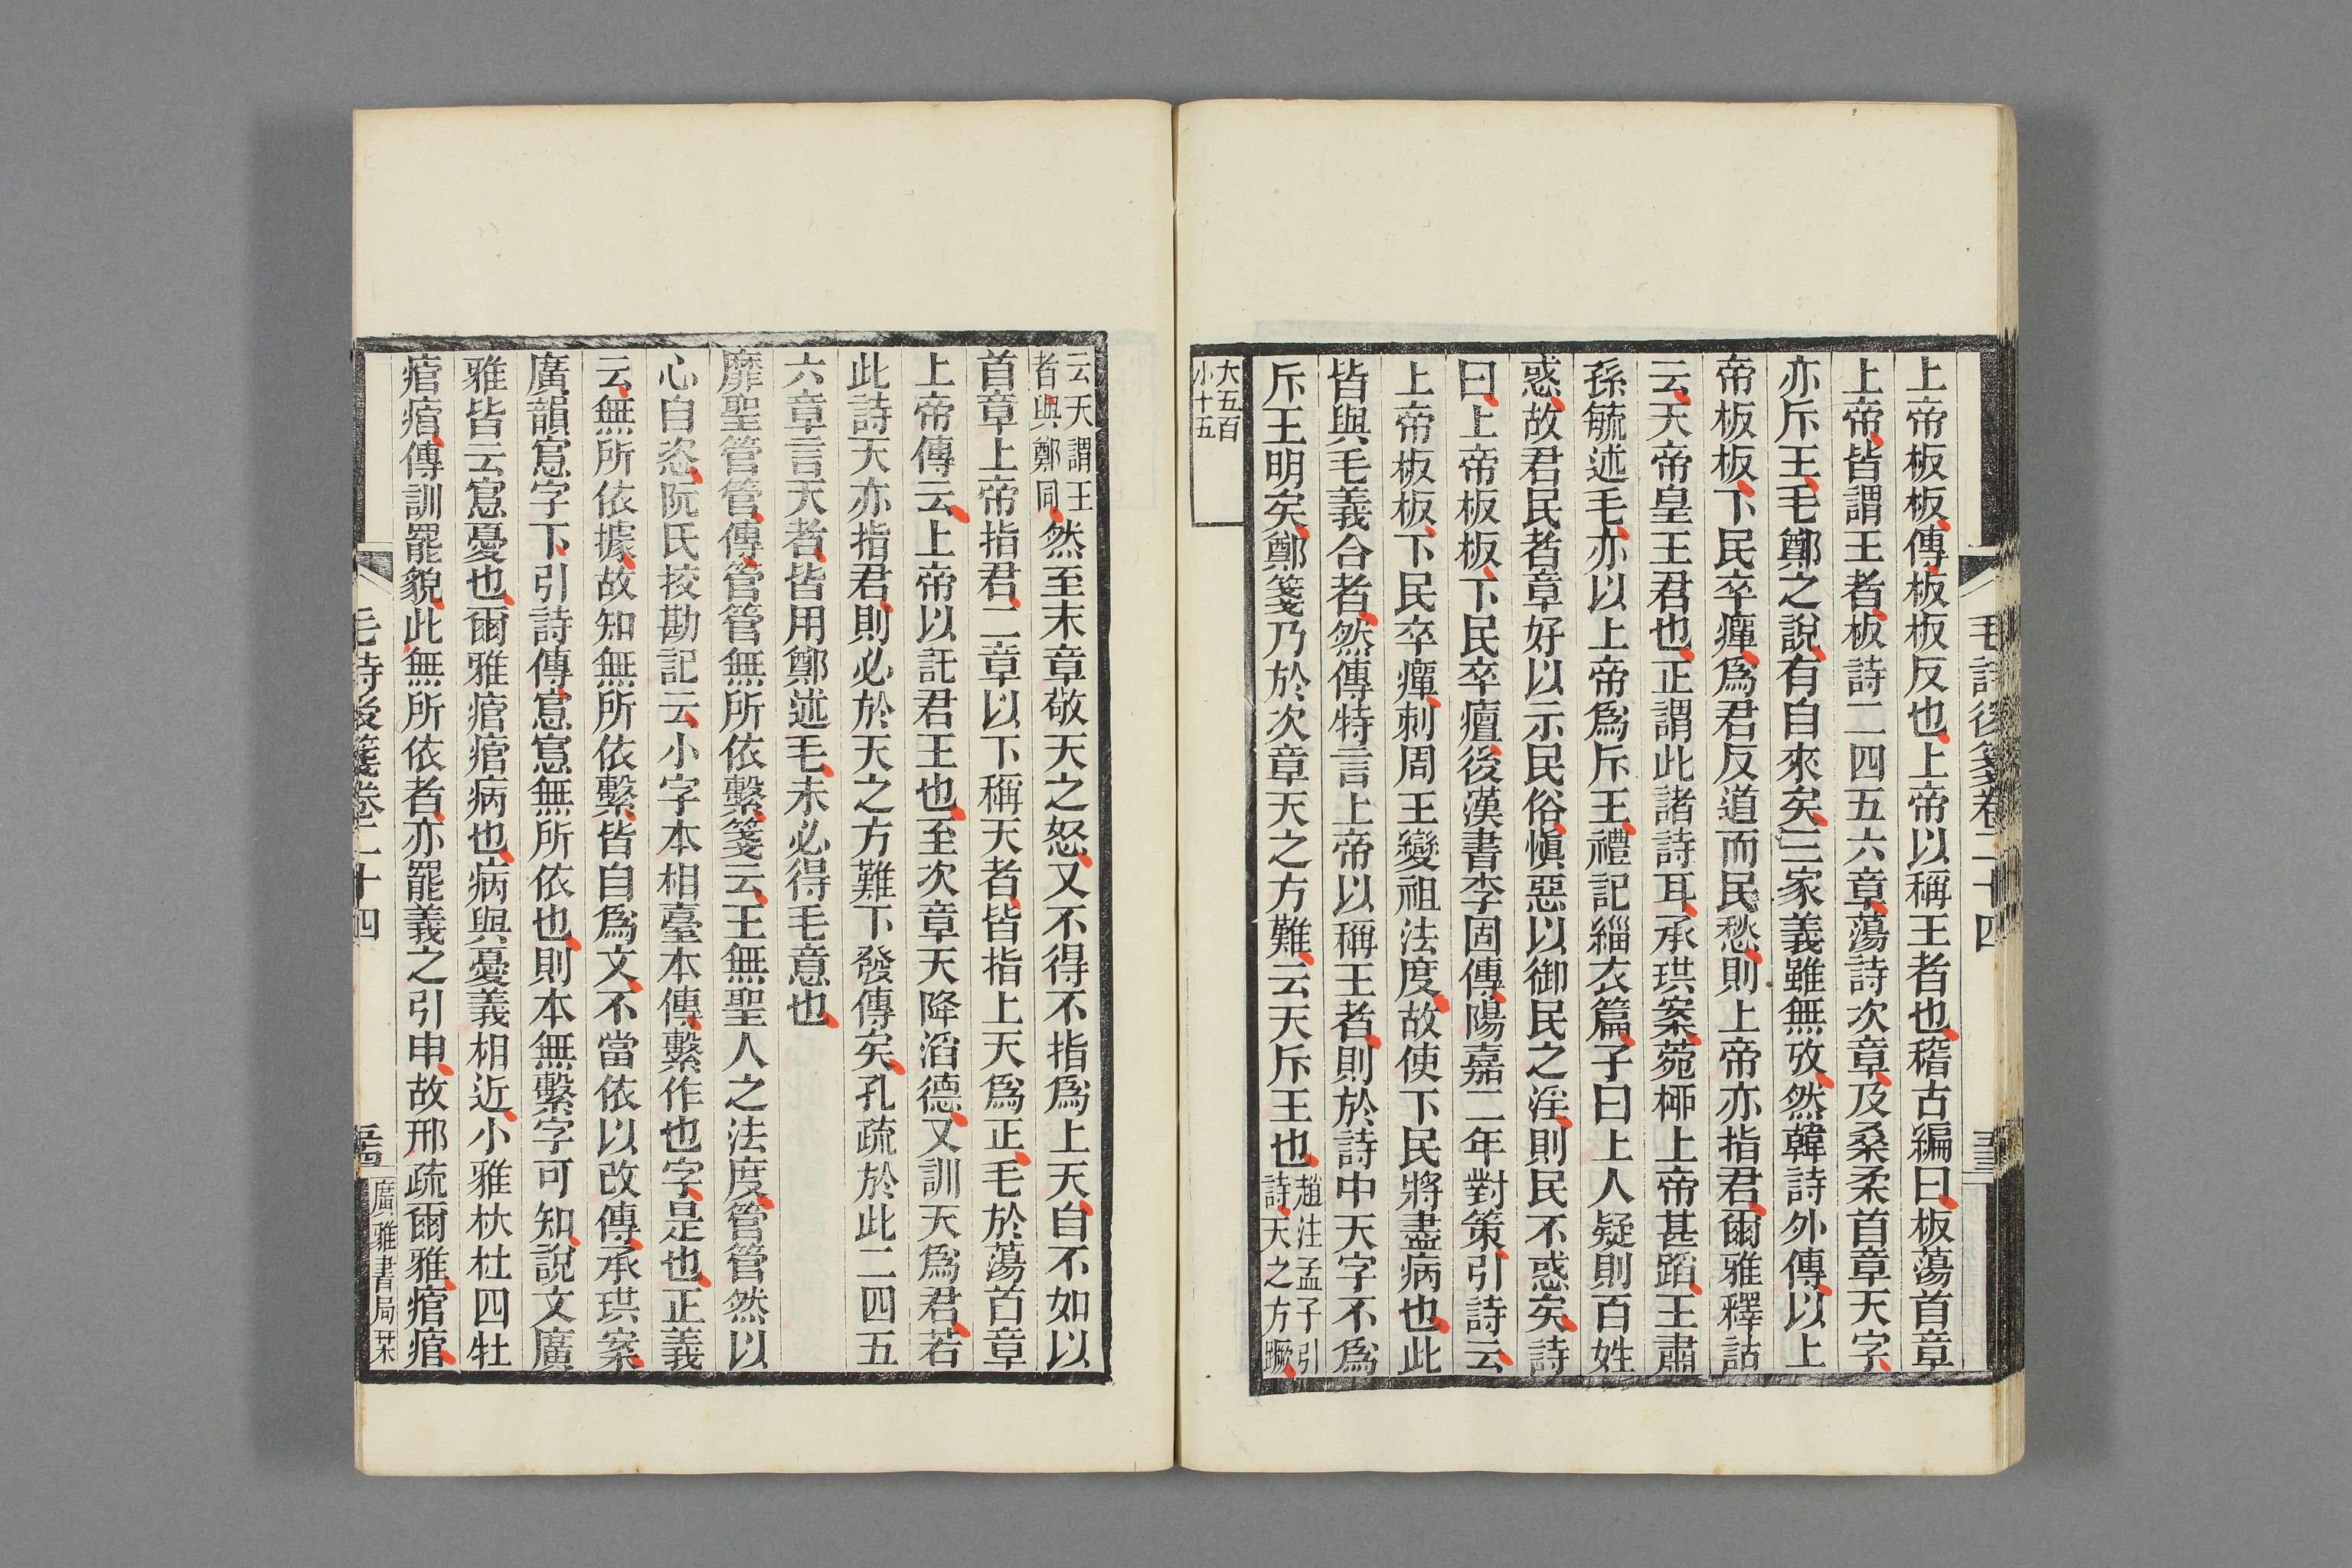 毛詩後箋卷二十四
五十三
上帝板板傳板板反也上帝以稱王者也稽古編曰板蕩首章
上帝皆謂王者板詩二四五六章蕩詩次章及桑柔首章天字
亦斥王毛鄭之說有自來矣三家義雖無攷然韓詩外傳以上
帝板板下民卒癉爲君反道而民愁則上帝亦指君爾雅釋詁
云天帝皇王君也正謂此諸詩耳承珙案菀桺上帝甚蹈王肅
孫毓述毛亦以上帝爲斥王禮記緇衣篇子曰上人疑則百姓
惑故君民者章好以示民俗愼惡以御民之淫則民不惑矣詩
曰上帝板板下民卒㿉後漢書李固傳陽嘉二年對策引詩云
上帝板板下民卒癉刺周王變祖法度故使下民將盡病也此
皆與毛義合者然傳特言上帝以稱王者則於詩中天字不爲
斥王明矣鄭箋乃於次章天之方難云天斥王也趙注孟子引
詩天之方蹶
大五百
小十五
云天謂王
者與鄭同然至末章敬天之怒又不得不指爲上天自不如以
首章上帝指君二章以下稱天者皆指上天爲正毛於蕩首章
上帝傳云上帝以託君王也至次章天降滔德又訓天爲君若
此詩天亦指君則必於天之方難下發傳矣孔疏於此二四五
六章言天者皆用鄭述毛未必得毛意也
靡聖管管傳管管無所依繫箋云王無聖人之法度管管然以
心自恣阮氏挍勘記云小字本相臺本傳繫作也字是也正義
云無所依據故知無所依繫皆自爲文不當依以改傳承珙案
廣韻悹字下引詩傳悹悹無所依也則本無繫字可知說文廣
雅皆云悹憂也爾雅痯痯病也病與憂義相近小雅杕杜四牡
痯痯傳訓罷貌此無所依者亦罷義之引申故邢疏爾雅痯痯
毛詩後箋卷二十四
五十四
廣雅書局栞